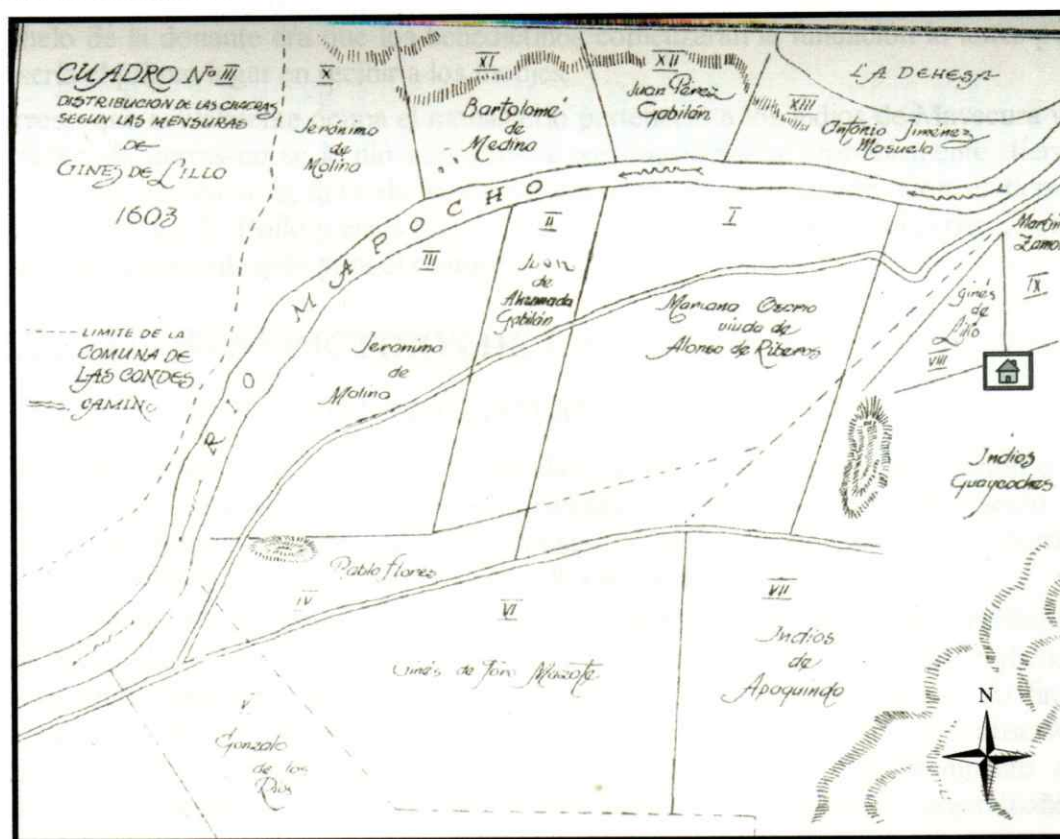 CUADRO Nº III
DISTRIBUCION DE LAS CHACRAS
SEGUN LAS MENSURAS
DE
GINES DE LILLO
1603
LIMITE DE LA
COMUNA DE
LAS CONDES
CAMINO
X
Jerónimo
de
Molina
XI
Bartolomé
de
Medina
XII
Juan Pérez
Gabilán
LA DEHESA
XIII
Antonio Jiménez
Mosuela
RIO MAPOCHO
III
Jeronimo
de
Molina
II
Juan
de
Ahumada
Gabilán
I
Mariana Osorio
viuda de
Alonso de Riberos
Martín
Zamo
IX
Ginés
de
Lillo
VIII
Indios
Guaycoches
Pablo Flores
IV
VI
Ginés de Toro Mazote
VII
Indios
de
Apoquindo
V
Gonzalo
de los
Rios
N